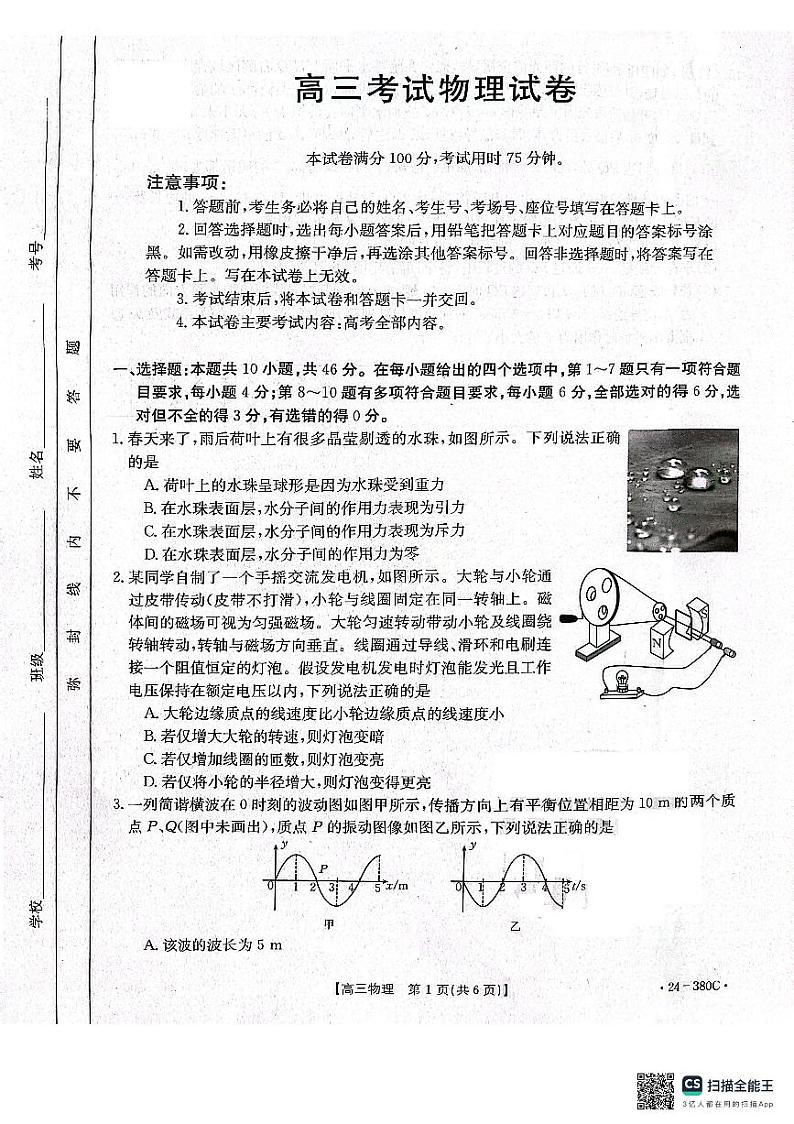 高三考试物理试卷
本试卷满分100分,考试用时75分钟。
注意事项:
1. 答题前,考生务必将自己的姓名、考生号、考场号、座位号填写在答题卡上。
2. 回答选择题时,选出每小题答案后,用铅笔把答题卡上对应题目的答案标号涂
黑。如需改动,用橡皮擦干净后,再选涂其他答案标号。回答非选择题时,将答案写在
答题卡上。写在本试卷上无效。
3. 考试结束后,将本试卷和答题卡一并交回。
4. 本试卷主要考试内容:高考全部内容。
一、选择题:本题共10小题,共46分。在每小题给出的四个选项中,第1~7题只有一项符合题
目要求,每小题4分;第8~10题有多项符合题目要求,每小题6分,全部选对的得6分,选
对但不全的得3分,有选错的得0分。
1. 春天来了,雨后荷叶上有很多晶莹剔透的水珠,如图所示。下列说法正确
的是
A. 荷叶上的水珠呈球形是因为水珠受到重力
B. 在水珠表面层,水分子间的作用力表现为引力
C. 在水珠表面层,水分子间的作用力表现为斥力
D. 在水珠表面层,水分子间的作用力为零
2. 某同学自制了一个手摇交流发电机,如图所示。大轮与小轮通
过皮带传动(皮带不打滑),小轮与线圈固定在同一转轴上。磁
体间的磁场可视为匀强磁场。大轮匀速转动带动小轮及线圈绕
转轴转动,转轴与磁场方向垂直。线圈通过导线、滑环和电刷连
接一个阻值恒定的灯泡。假设发电机发电时灯泡能发光且工作
电压保持在额定电压以内,下列说法正确的是
S
N
A. 大轮边缘质点的线速度比小轮边缘质点的线速度小
B. 若仅增大大轮的转速,则灯泡变暗
C. 若仅增加线圈的匝数,则灯泡变亮
D. 若仅将小轮的半径增大,则灯泡变得更亮
3. 一列简谐横波在0时刻的波动图如图甲所示,传播方向上有平衡位置相距为10 m的两个质
点P、Q(图中未画出),质点P的振动图像如图乙所示,下列说法正确的是
y
P
0 1 2 3 4 5 x/m
甲
y
0 1 2 3 4 5 t/s
乙
A. 该波的波长为5 m
【高三物理 第1页(共6页)】
·24-380C·
学校
班级
姓名
考号
弥 封 线 内 不 要 答 题
CS 扫描全能王
3亿人都在用的扫描App